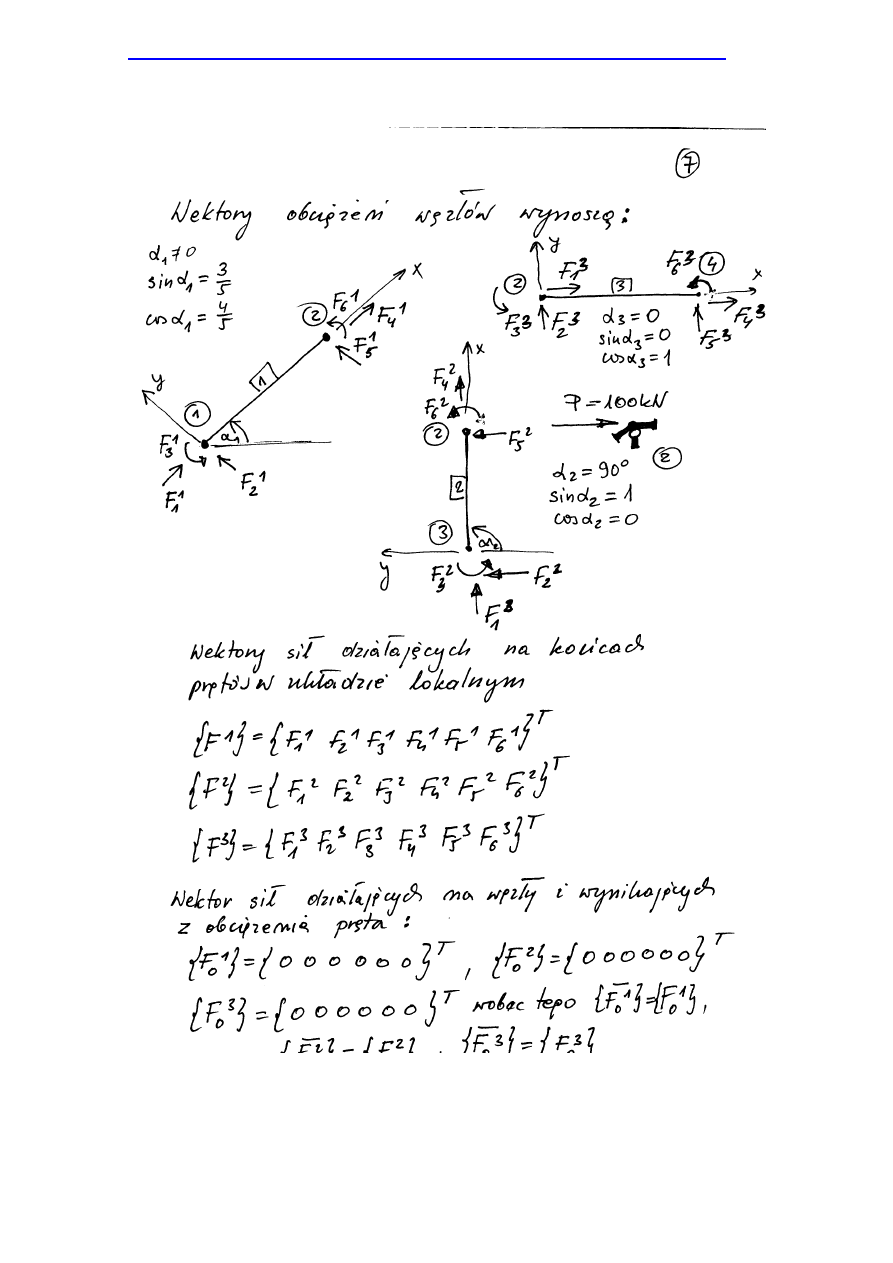 7
Wektory obciążeń węzłów wynoszą:
α₁≠0
sinα₁ = 3/5
cosα₁ = 4/5
x
y
1
2
1
α₁
F₁¹
F₂¹
F₃¹
F₄¹
F₅¹
F₆¹
y
x
2
3
4
F₁³
F₂³
F₃³
F₄³
F₅³
F₆³
α₃=0
sinα₃=0
cosα₃=1
x
y
F₄²
F₆²
2
F₅²
2
3
α₂
F₃²
F₂²
F₁
P=100kN
2
α₂=90°
sinα₂=1
cosα₂=0
Wektory sił działających na końcach
prętów w układzie lokalnym
{F¹}={F₁¹ F₂¹ F₃¹ F₄¹ F₅¹ F₆¹}ᵀ
{F²}={F₁² F₂² F₃² F₄² F₅² F₆²}ᵀ
{F³}={F₁³ F₂³ F₃³ F₄³ F₅³ F₆³}ᵀ
Wektor sił działających na węzły i wynikających
z obciążenia pręta:
{F₀¹}={0 0 0 0 0 0}ᵀ, {F₀²}={0 0 0 0 0 0}ᵀ
{F₀³}={0 0 0 0 0 0}ᵀ wobec tego {F̅₀¹}={F₀¹},
{F̅₀³}={F₀³}